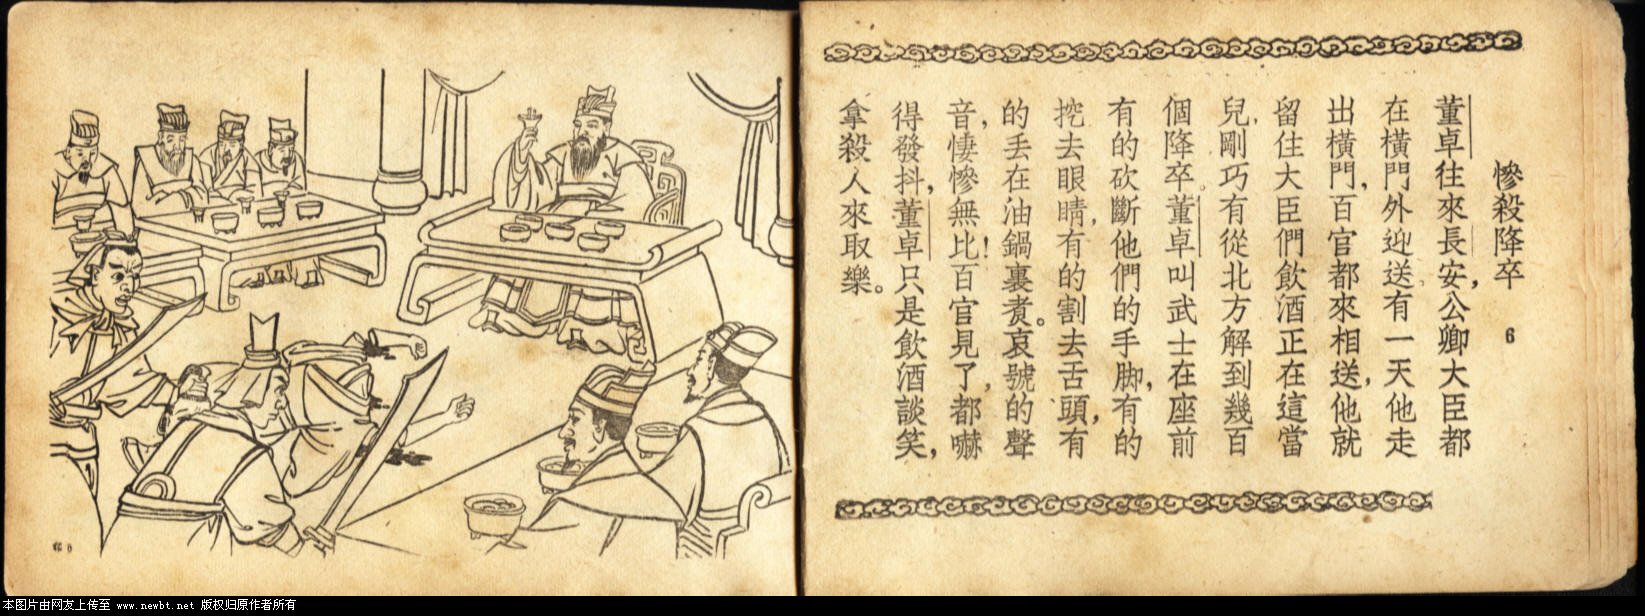 慘殺降卒 6
董卓往來長安,公卿大臣都
在橫門外迎送有一天他走
出橫門,百官都來相送,他就
留住大臣們飲酒正在這當
兒,剛巧有從北方解到幾百
個降卒。董卓叫武士在座前
有的砍斷他們的手脚,有的
挖去眼睛,有的割去舌頭,有
的丟在油鍋裏煮。哀號的聲
音,悽慘無比!百官見了,都嚇
得發抖,董卓只是飲酒談笑,
拿殺人來取樂。
本图片由网友上传至 www.newbt.net 版权归原作者所有